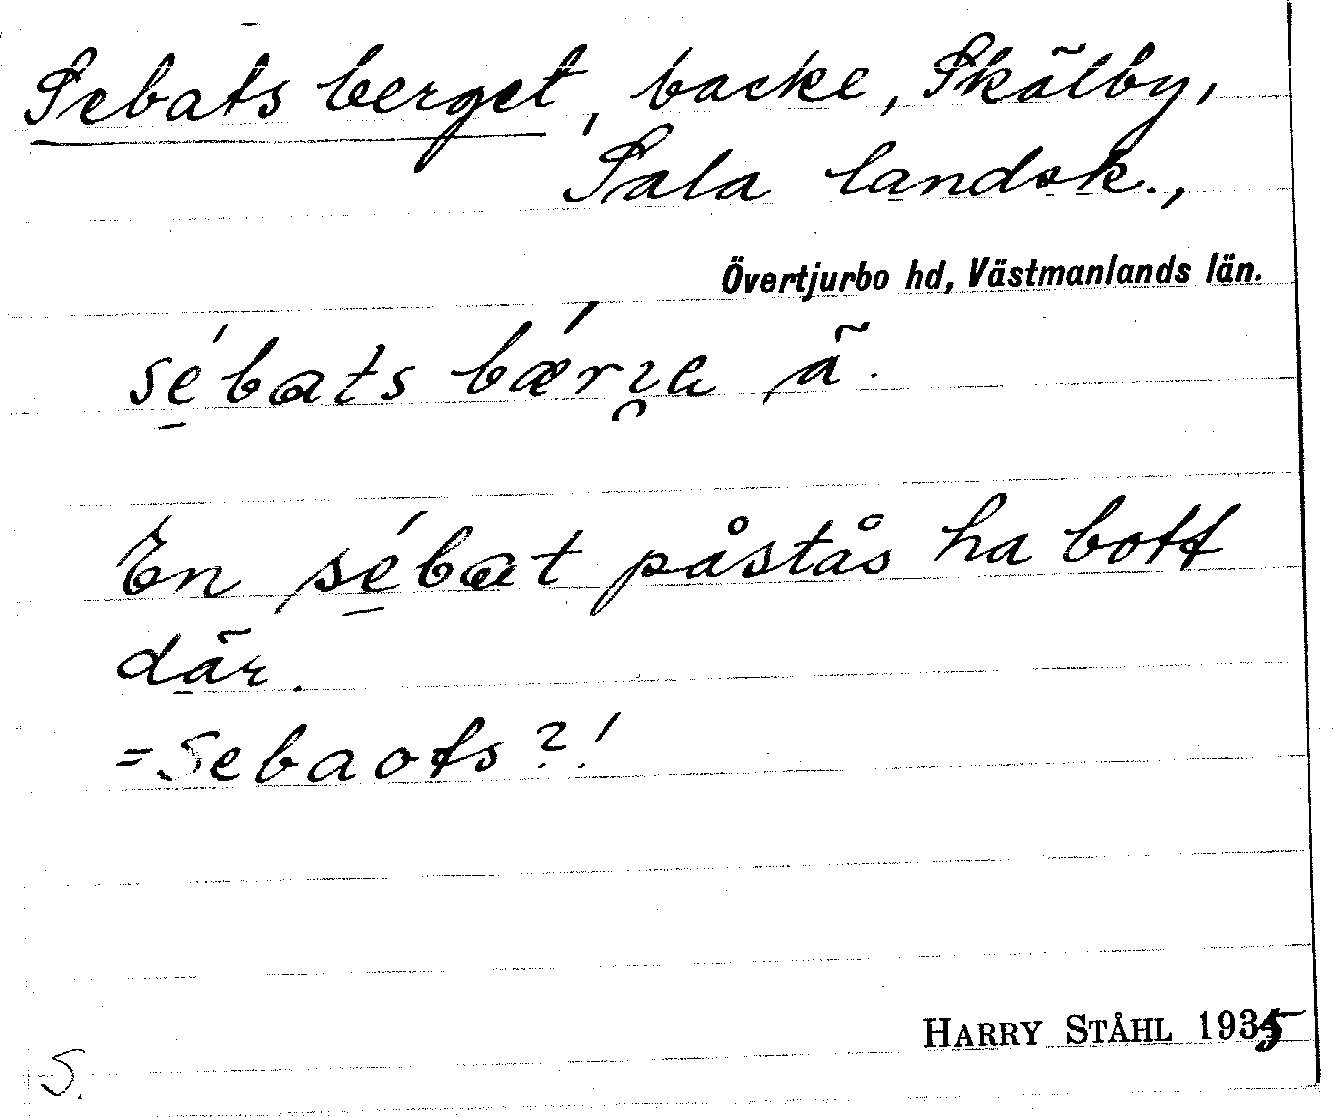 Sebats berget, backe, Skälby,
Sala landsk.,
Övertjurbo hd, Västmanlands län.
sébats bærge ä.
En sébat påstås ha bott
där.
= Sebaots?!
HARRY STÅHL 1935
S.